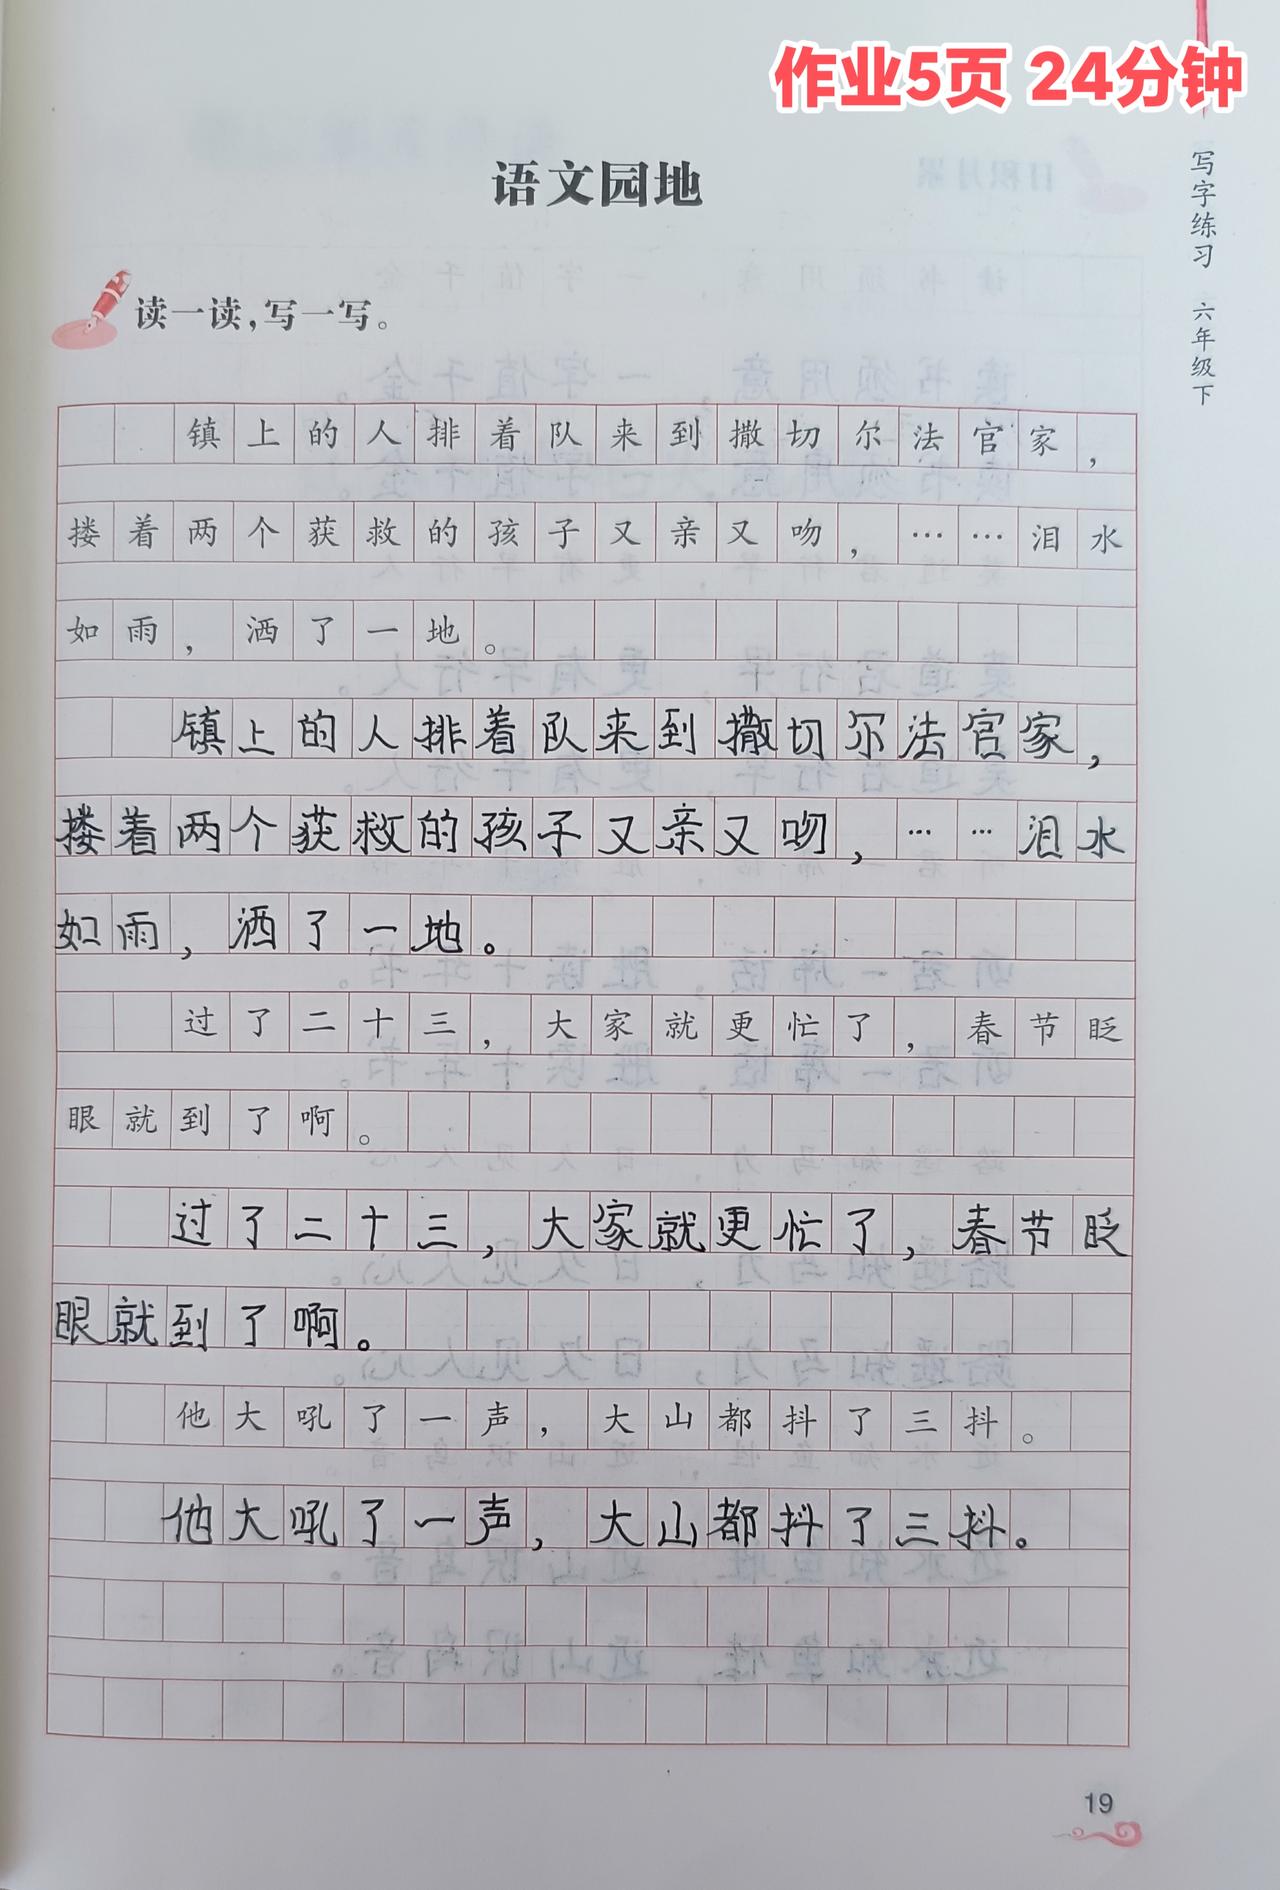 作业5页 24分钟
语文园地
写字练习 六年级下
读一读，写一写。
镇上的人排着队来到撒切尔法官家，
搂着两个获救的孩子又亲又吻，……泪水
如雨，洒了一地。
镇上的人排着队来到撒切尔法官家，
搂着两个获救的孩子又亲又吻，……泪水
如雨，洒了一地。
过了二十三，大家就更忙了，春节眨
眼就到了啊。
过了二十三，大家就更忙了，春节眨
眼就到了啊。
他大吼了一声，大山都抖了三抖。
他大吼了一声，大山都抖了三抖。
19